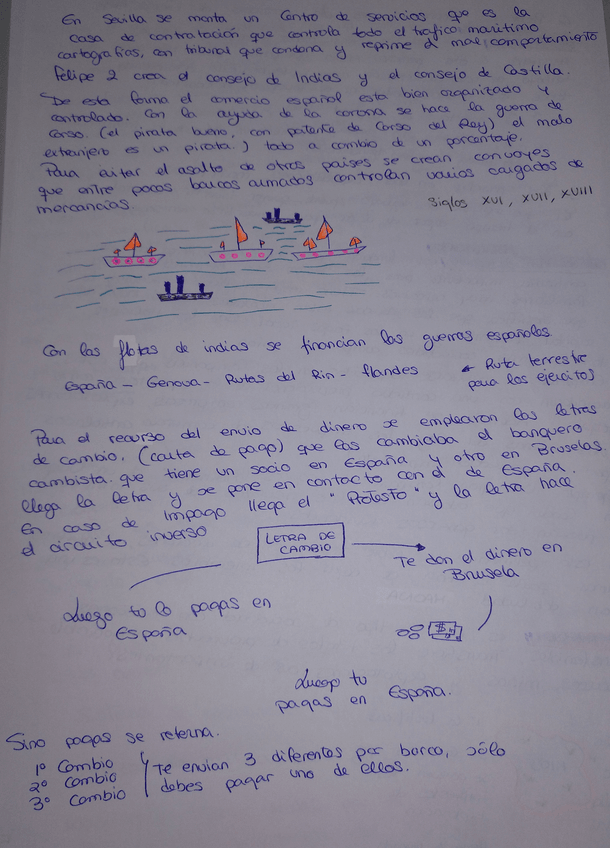 En Sevilla se monta un Centro de servicios que es la
casa de contratación que controla todo el trafico maritimo
cartografias, con tribunal que condena y reprime el mal comportamiento
Felipe 2 crea el consejo de Indias y el consejo de Castilla.
De esta forma el comercio español esta bien organizado y
controlado. Con la ayuda de la corona se hace la guerra de
Corso. (el pirata bueno, con patente de Corso del Rey) el malo
extranjero es un pirata.) todo a cambio de un porcentaje.
Para evitar el asalto de otros paises se crean convoyes
que entre pocos barcos armados controlan varios cargados de
mercancias.
Siglos XVI, XVII, XVIII
Con las flotas de indias se financian las guerras españolas.
España - Genova - Rutas del Rin - flandes
← Ruta terrestre
para los ejercitos
Para el recurso del envio de dinero se emplearon las letras
de cambio, (carta de pago) que las cambiaba el banquero
cambista. que tiene un socio en España y otro en Bruselas.
llega la letra y se pone en contacto con el de España.
En caso de impago llega el "Protesto" y la letra hace
el circuito inverso
LETRA DE
CAMBIO
Te dan el dinero en
Brusela
Luego tu lo pagas en
España
$
Luego tu
pagas en España.
Sino pagas se retorna.
1º Cambio
2º Cambio
3º Cambio
Te envian 3 diferentes por barco, sólo
debes pagar uno de ellas.